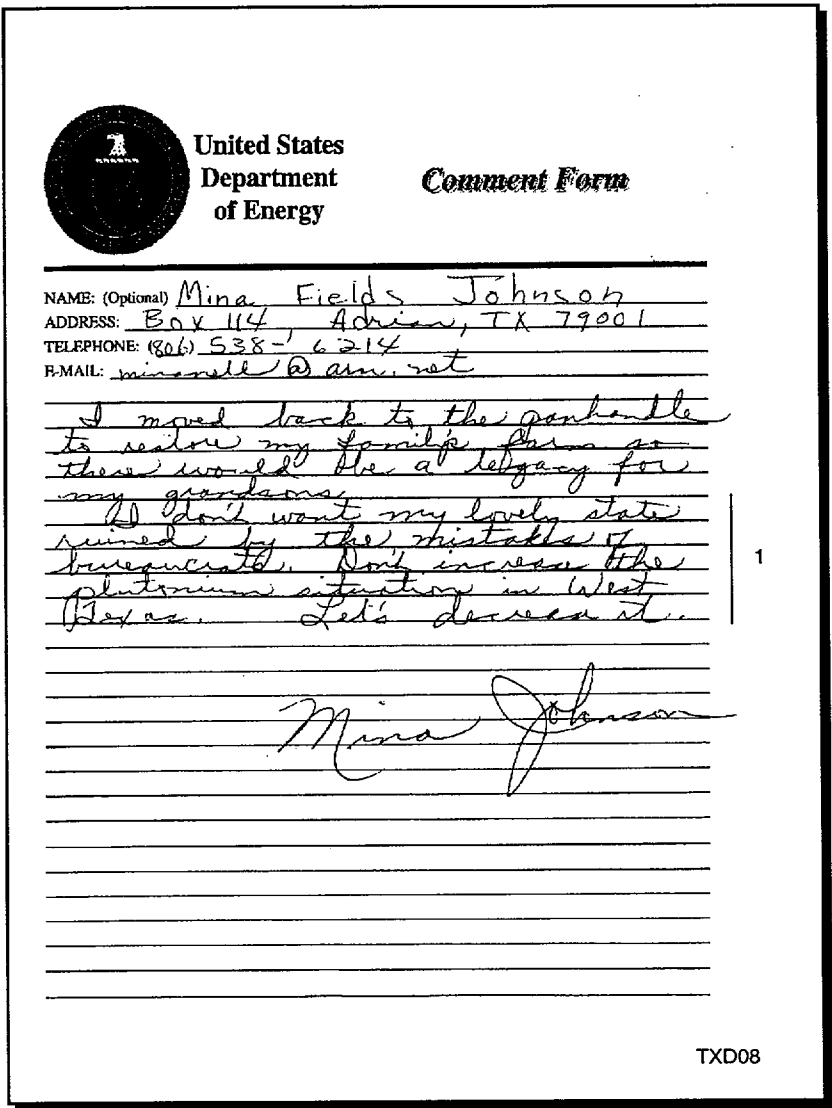 United States
Department
of Energy
Comment Form
NAME: (Optional) Mina Fields Johnson
ADDRESS: Box 114, Adrian, TX 79001
TELEPHONE: (806) 538-6214
E-MAIL: minanell @ arn.net
I moved back to the panhandle
to restore my family's farm so
there would be a legacy for
my grandsons.
I don't want my lovely state
ruined by the mistakes of
bureaucrats. Don't increase the
plutonium situation in West
Texas. Let's decrease it.
1
Mina Johnson
TXD08